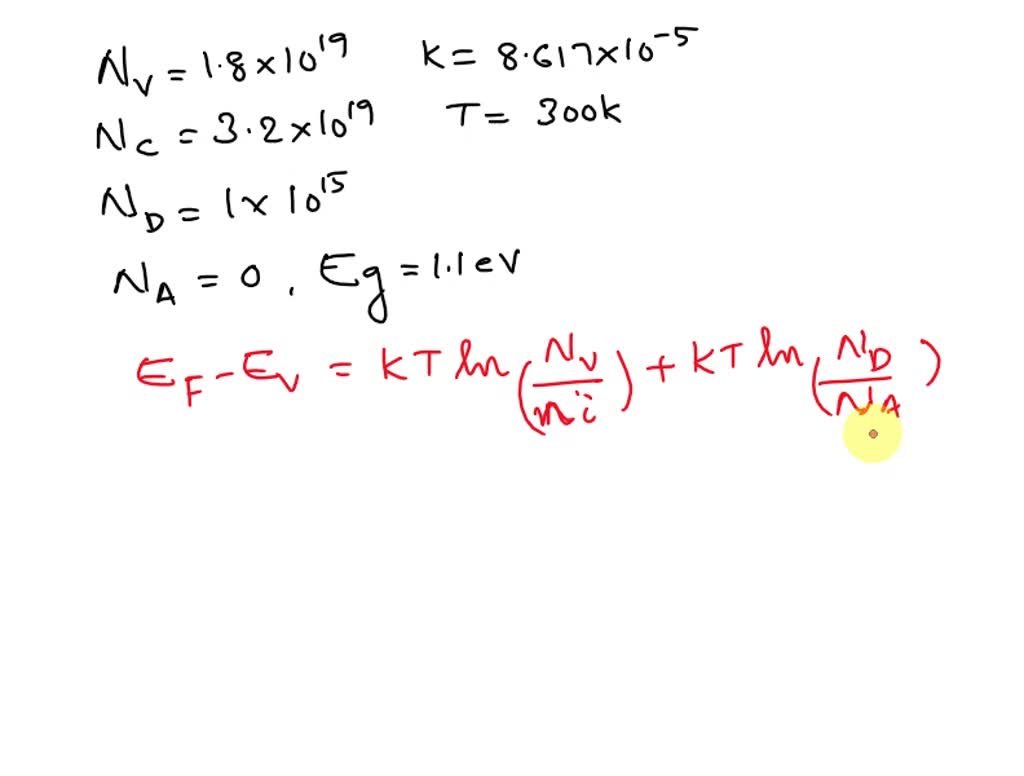 N_V = 1.8×10^19 K = 8.617×10^-5
N_C = 3.2×10^19 T = 300k
N_D = 1×10^15
N_A = 0, Eg = 1.1eV
E_F - E_V = KT ln(N_V/ni) + KT ln(N_D/N_A)